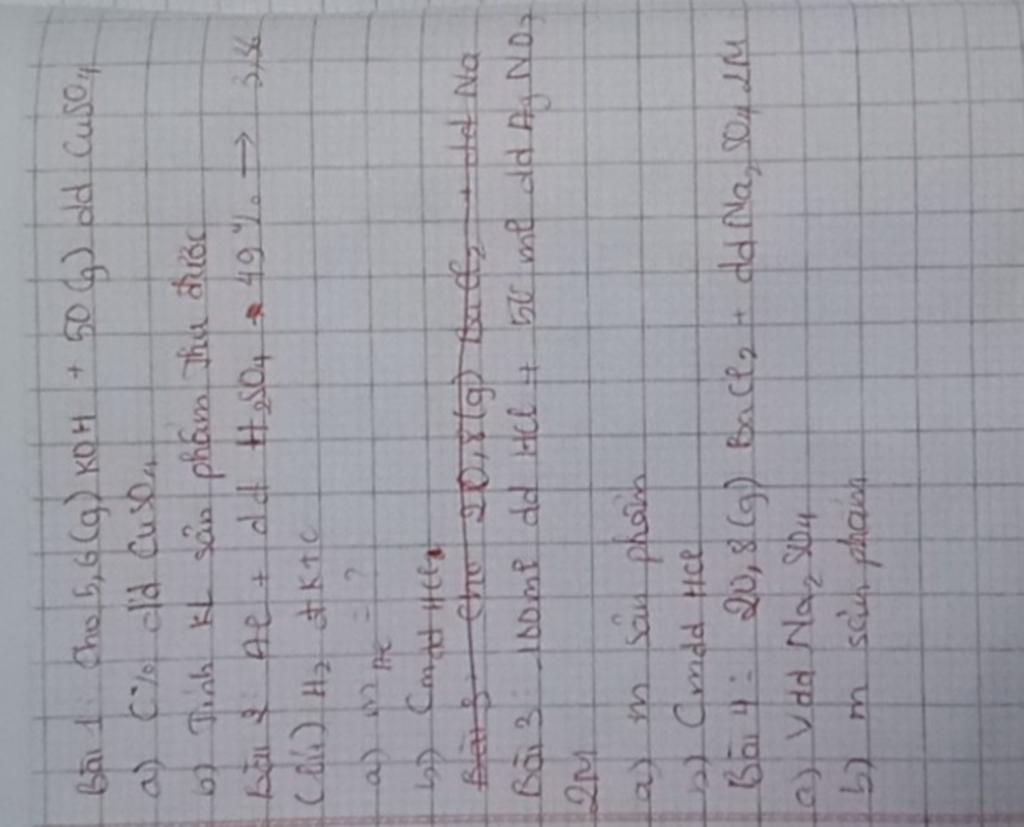 Bài 1: Cho 5,6(g) KOH + 50(g) dd CuSO4
a) C% dd CuSO4
b) Tính KL sản phẩm thu được
Bài 2: Al + dd H2SO4 49% → 3,36
(lít) H2 đktc
a) m Al = ?
b) Cm dd HCl
Bài 3: Cho 20,8(g) BaCl2 + dd Na
Bài 3: 100ml dd HCl + 50 ml dd AgNO3
2M
a) m sản phẩm
b) Cmdd HCl
Bài 4: 20,8(g) BaCl2 + dd Na2SO4 2M
a) Vdd Na2SO4
b) m sản phẩm